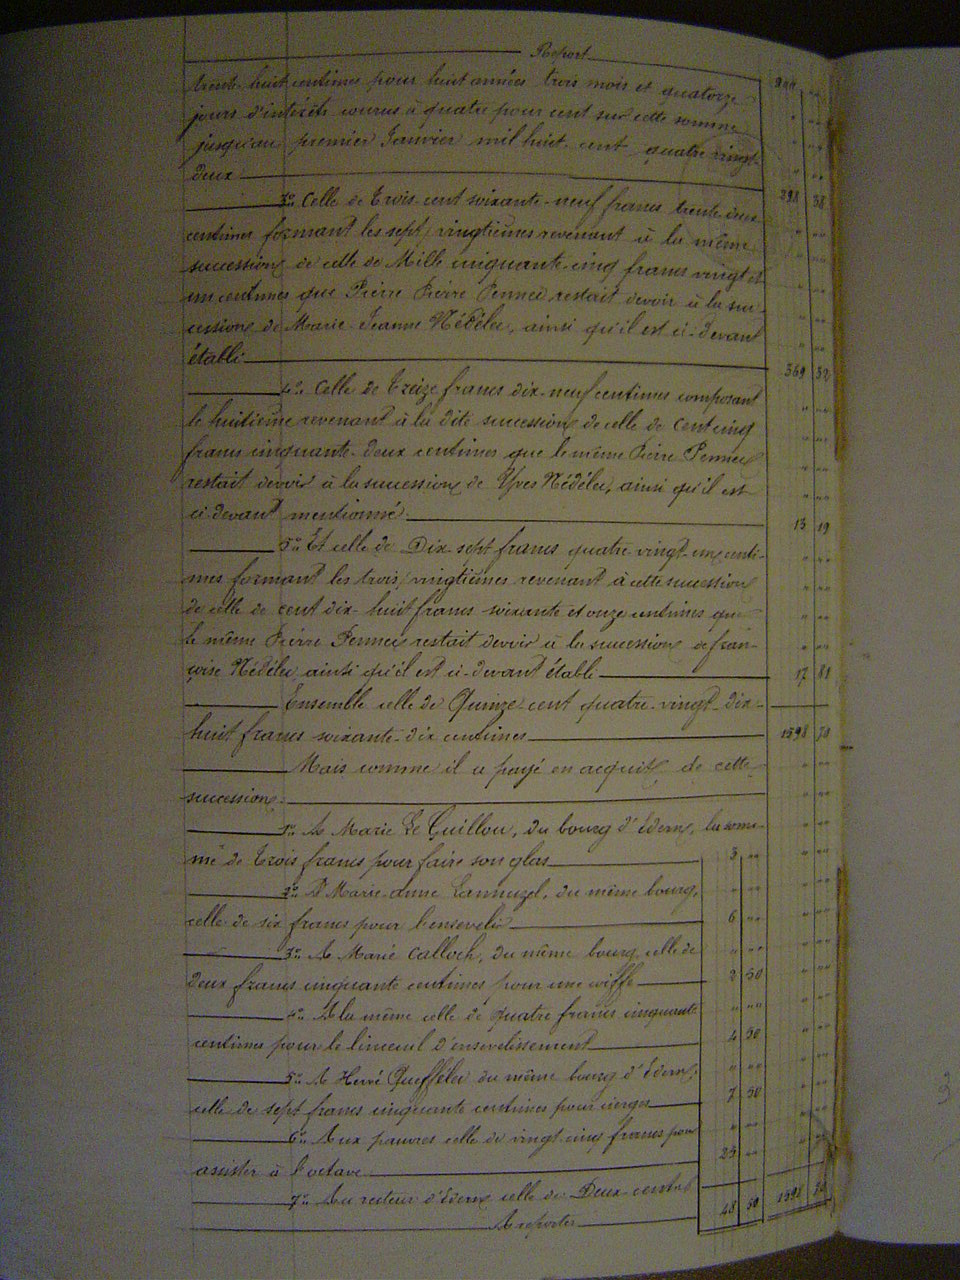 Report
trente-huit centimes pour huit années trois mois et quatorze
jours d'intérêts courus à quatre pour cent sur cette somme
jusqu'au premier Janvier mil huit cent quatre vingt-
deux 298 38
3° Celle de Trois-cent soixante-neuf francs trente deux
centimes formant les sept vingtièmes revenant à la même
succession de celle de Mille cinquante cinq francs vingt et
un centimes que Pierre Pierre Pennec restait devoir à la suc-
cession de Marie-Jeanne Nédélec, ainsi qu'il est ci-devant
établi 369 32
4° Celle de treize francs dix-neuf centimes composant
le huitième revenant à la dite succession de celle de Cent cinq
francs cinquante-deux centimes que le même Pierre Pennec
restait devoir à la succession de Yves Nédélec, ainsi qu'il est
ci-devant mentionné. 13 19
5° Et celle de Dix-sept francs quatre vingt-un centi-
mes formant les trois vingtièmes revenant à cette succession
de celle de cent dix-huit francs soixante et onze centimes que
le même Pierre Pennec restait devoir à la succession de fran-
çoise Nédélec ainsi qu'il est ci-devant établi 17 81
Ensemble celle de Quinze-cent quatre-vingt-dix-
huit francs soixante-dix centimes 1598 70
Mais comme il a payé en acquit de cette
succession:
1° A Marie Le Guillou, du bourg d'Edern, la som-
me de Trois francs pour faire son glas 3 ""
2° A Marie-Anne Lannuzel, du même bourg,
celle de six francs pour l'ensevelir 6 ""
3° A Marie Calloch, du même bourg, celle de
deux francs cinquante centimes pour une coiffe 2 50
4° A la même celle de quatre francs cinquante
centimes pour le linceuil d'ensevelissement 4 50
5° A Hervé Queffélec du même bourg d'Edern,
celle de sept francs cinquante centimes pour cierges 7 50
6° Aux pauvres celle de vingt-cinq francs pour
assister à l'octave 25 ""
7° Au recteur d'Edern celle de Deux-cents
A reporter 48 50 1598 70